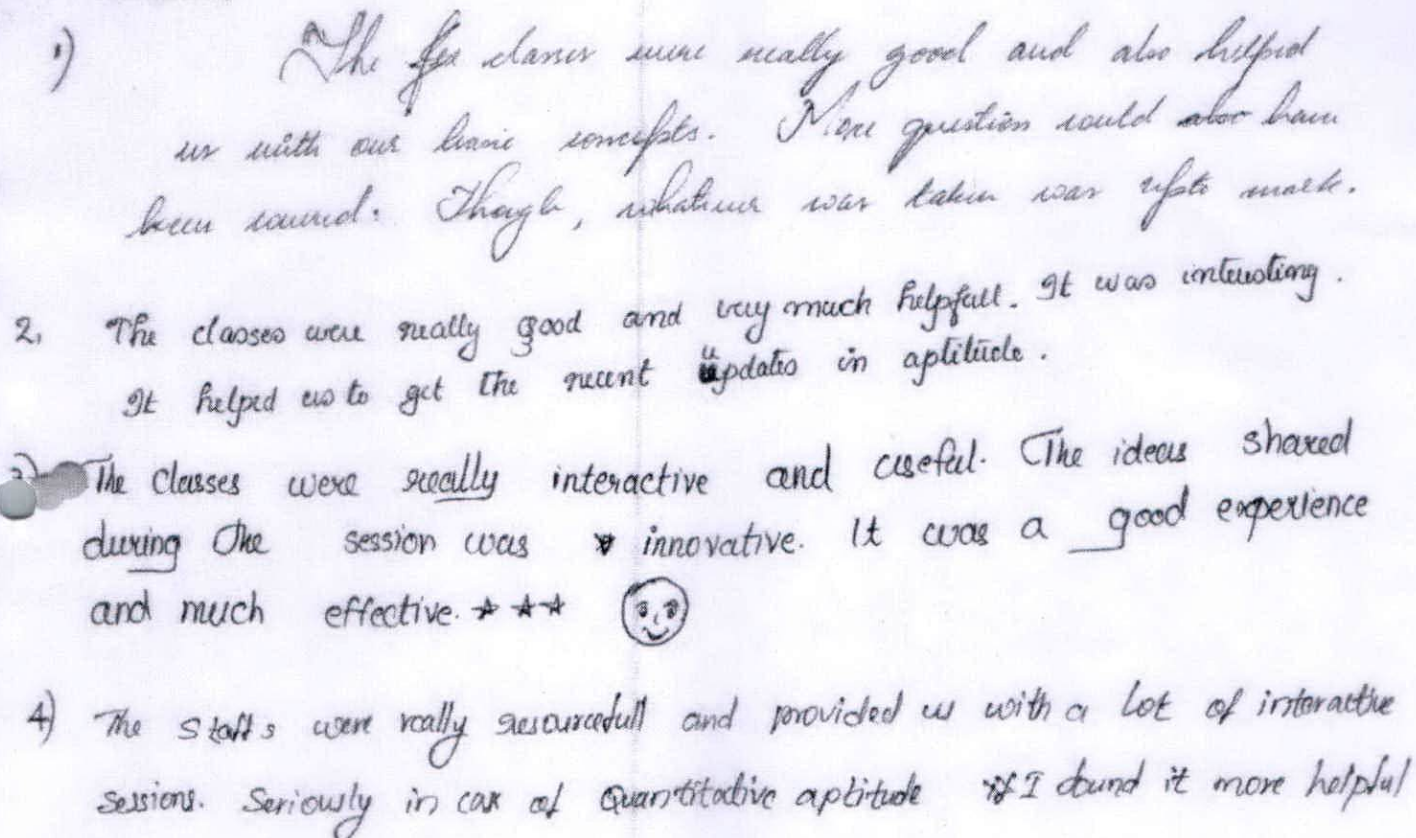 1) The classes were really good and also helped
us with our basic concepts. More question could also have
been covered. Though, whatever was taken was upto mark.
2. The classes were really good and very much helpfull. It was interesting.
It helped us to get the recent updates in aptitude.
3) The classes were really interactive and useful. The ideas shared
during the session was innovative. It was a good experience
and much effective. ★ ★ ★
4) The Staffs were really resourcefull and provided us with a lot of interactive
sessions. Seriously in case of Quantitative aptitude I found it more helpful